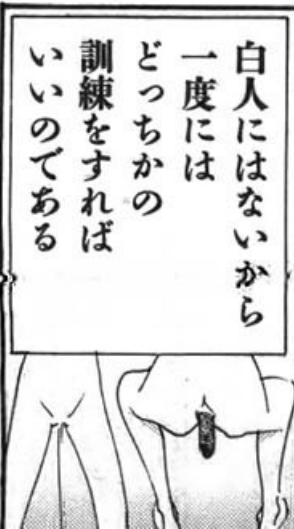 白人にはないから
一度には
どっちかの
訓練をすれば
いいのである